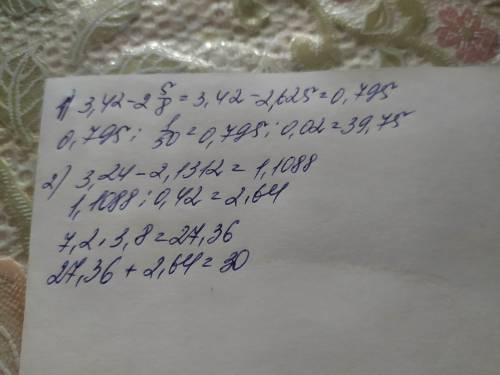 1) 3,42-2 5/8=3,42-2,625=0,795
0,795 : 1/50=0,795 : 0,02=39,75
2) 3,24-2,1312=1,1088
1,1088 : 0,42=2,64
7,2 · 3,8=27,36
27,36+2,64=30